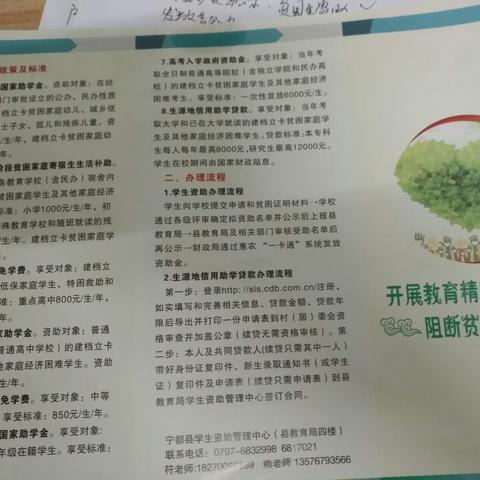 政策及标准
国家助学金。资助对象：在经
部门审批设立的公办、民办性质
建档立卡贫困家庭幼儿、城乡低
士子女、孤儿和残疾儿童。资
元/生/年，建档立卡贫困家庭幼
阶段贫困家庭寄宿生生活补助。
务教育学校（含民办）宿舍内
卡贫困家庭学生及其他家庭经济
标准：小学1000元/生/年，初
特殊教育学校和随班就读的残
生/年。建档立卡贫困家庭学
免学费。享受对象：建档立
低保家庭学生、特困救助和
准：重点高中800元/生/年，
助学金。资助对象：普通
普通高中学校）的建档立卡
他家庭经济困难学生。资助
/生/年。
免学费。享受对象：中等
享受标准：850元/生/年。
国家助学金。享受对象：
年级在籍学生。享受标准：
7.高考入学政府资助金。享受对象：当年考
取全日制普通高等院校（含独立学院和民办高
校）的建档立卡贫困家庭学生及其他家庭经济
困难考生。享受标准：一次性发放6000元/生。
8.生源地信用助学贷款。享受对象：当年考
取大学和已在大学就读的建档立卡贫困家庭学
生及其他家庭经济困难学生。贷款标准：本专科
生每人每年最高8000元，研究生最高12000元。
学生在校期间由国家财政贴息。
二、办理流程
1.学生资助办理流程
学生向学校提交申请和贫困证明材料→学校
通过各级评审确定拟资助名单并公示后上报县
教育局→县教育局及相关部门审核受助名单后
再公示→财政局通过惠农“一卡通”系统发放
资助金。
2.生源地信用助学贷款办理流程
第一步：登录http://sls.cdb.com.cn/注册，
如实填写和完善相关信息、贷款金额、贷款年
限后导出并打印一份申请表到村（居）委会资
格审查并加盖公章（续贷无需资格审核）。第
二步：本人及共同贷款人(续贷只需其中一人)
带好身份证复印件、新生录取通知书（或学生
证）复印件及申请表（续贷只需申请表）到县
教育局学生资助管理中心签订合同。
宁都县学生资助管理中心（县教育局四楼）
联系电话：0797-6832998 6817021
符老师: 赖老师 13576793566
开展教育精
阻断贫